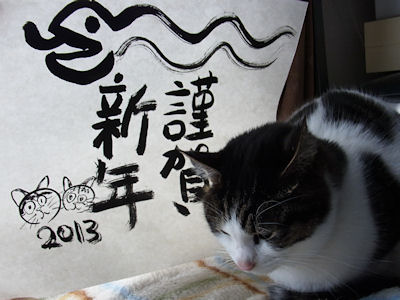 謹賀
新年
2013